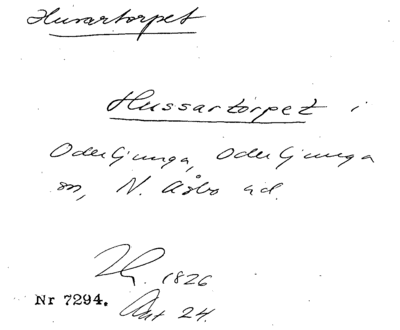 Husartorpet
Hussartorpet i
Oderljunga, Oderljunga
sn, N. Åsbo hd.
1826
Nr 7294. Akt 24.